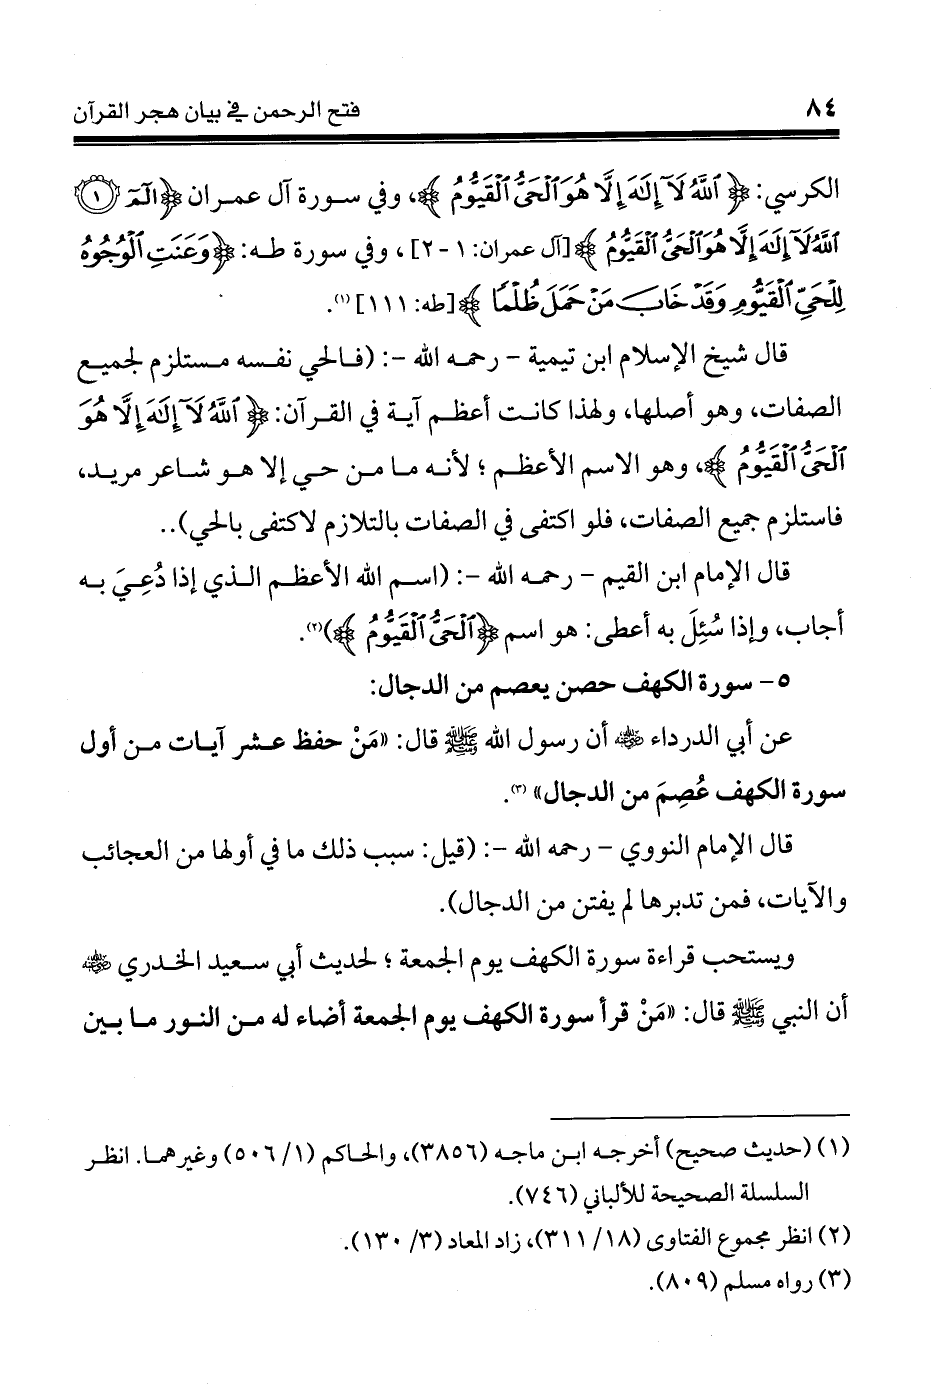 ٨٤ فتح الرحمن في بيان هجر القرآن
الكرسي: ﴿ ٱللَّهُ لَآ إِلَٰهَ إِلَّا هُوَ ٱلْحَىُّ ٱلْقَيُّومُ ﴾، وفي سورة آل عمران ﴿ الٓمٓ ١
ٱللَّهُ لَآ إِلَٰهَ إِلَّا هُوَ ٱلْحَىُّ ٱلْقَيُّومُ ﴾ [آل عمران: ١ - ٢]، وفي سورة طه: ﴿ وَعَنَتِ ٱلْوُجُوهُ
لِلْحَيِّ ٱلْقَيُّومِ وَقَدْ خَابَ مَنْ حَمَلَ ظُلْمًا ﴾ [طه: ١١١] (١).
قال شيخ الإسلام ابن تيمية - رحمه الله -: (فالحي نفسه مستلزم لجميع
الصفات، وهو أصلها، ولهذا كانت أعظم آية في القرآن: ﴿ ٱللَّهُ لَآ إِلَٰهَ إِلَّا هُوَ
ٱلْحَىُّ ٱلْقَيُّومُ ﴾، وهو الاسم الأعظم ؛ لأنه ما من حي إلا هو شاعر مريد،
فاستلزم جميع الصفات، فلو اكتفى في الصفات بالتلازم لاكتفى بالحي)..
قال الإمام ابن القيم - رحمه الله -: (اسم الله الأعظم الذي إذا دُعِيَ به
أجاب، وإذا سُئِلَ به أعطى: هو اسم ﴿ ٱلْحَىُّ ٱلْقَيُّومُ ﴾)(٢).
٥- سورة الكهف حصن يعصم من الدجال:
عن أبي الدرداء رضي الله عنه أن رسول الله ﷺ قال: «مَنْ حفظ عشر آيات من أول
سورة الكهف عُصِمَ من الدجال» (٣).
قال الإمام النووي - رحمه الله -: (قيل: سبب ذلك ما في أولها من العجائب
والآيات، فمن تدبرها لم يفتن من الدجال).
ويستحب قراءة سورة الكهف يوم الجمعة ؛ لحديث أبي سعيد الخدري رضي الله عنه
أن النبي ﷺ قال: «مَنْ قرأ سورة الكهف يوم الجمعة أضاء له من النور ما بين
(١) (حديث صحيح) أخرجه ابن ماجه (٣٨٥٦)، والحاكم (١/ ٥٠٦) وغيرهما. انظر
السلسلة الصحيحة للألباني (٧٤٦).
(٢) انظر مجموع الفتاوى (١٨/ ٣١١)، زاد المعاد (٣/ ١٣٠).
(٣) رواه مسلم (٨٠٩).